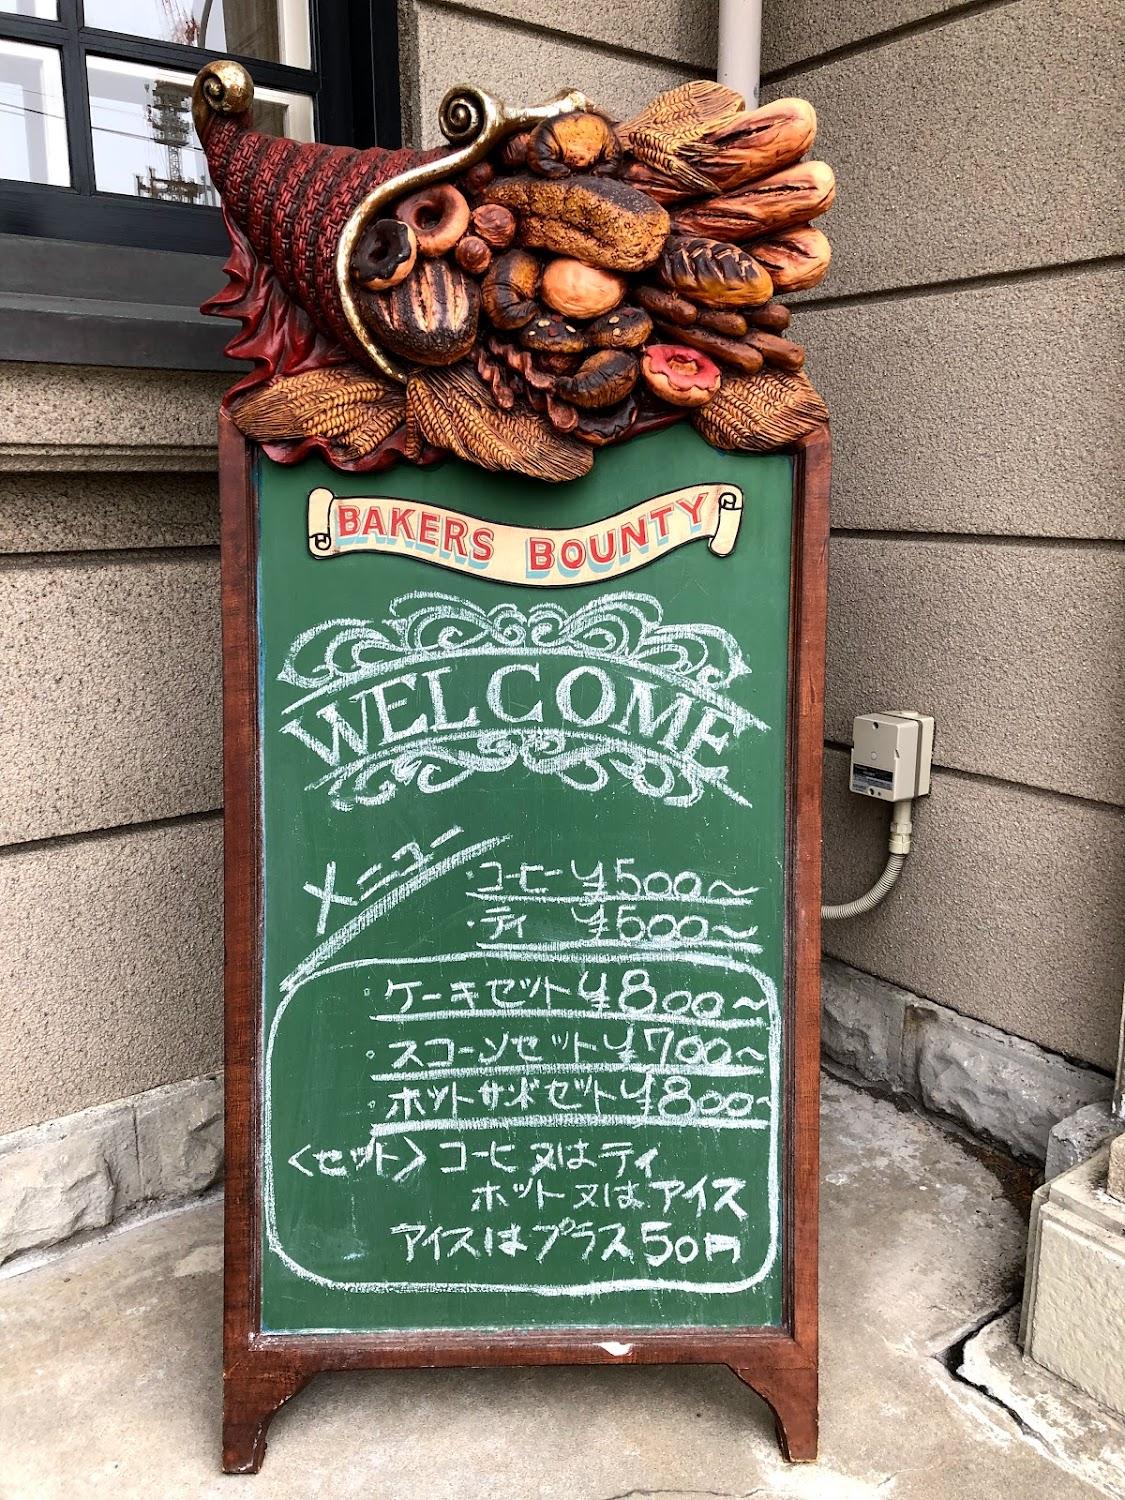 BAKERS BOUNTY
WELCOME
メニュー
・コーヒー ¥500〜
・ティ ¥500〜
・ケーキセット ¥800〜
・スコーンセット ¥700〜
・ホットサンドセット ¥800〜
<セット> コーヒ又はティ
ホット又はアイス
アイスはプラス50円